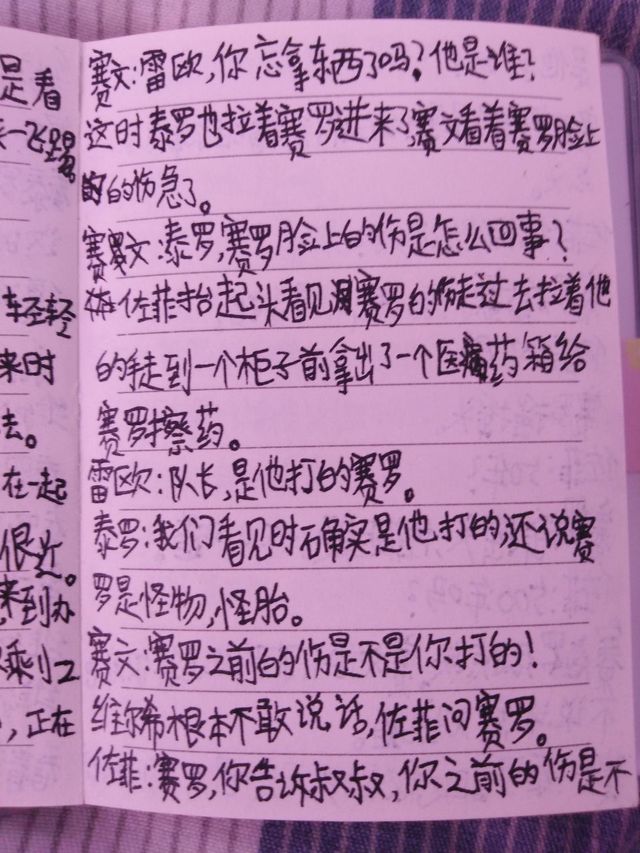 是看
一飞踢。
轻轻
来时
去。
在一起
很近。
来到办
乘小工
,正在
赛文:雷欧,你忘拿东西了吗?他是谁?
这时泰罗也拉着赛罗进来了,赛文看着赛罗脸上
的伤急了。
赛文:泰罗,赛罗脸上的伤是怎么回事?
佐菲抬起头看见赛罗的伤走过去拉着他
的手走到一个柜子前拿出了一个医药箱给
赛罗擦药。
雷欧:队长,是他打的赛罗。
泰罗:我们看见时确实是他打的,还说赛
罗是怪物,怪胎。
赛文:赛罗之前的伤是不是你打的!
维尔希根本不敢说话,佐菲问赛罗。
佐菲:赛罗,你告诉叔叔,你之前的伤是不